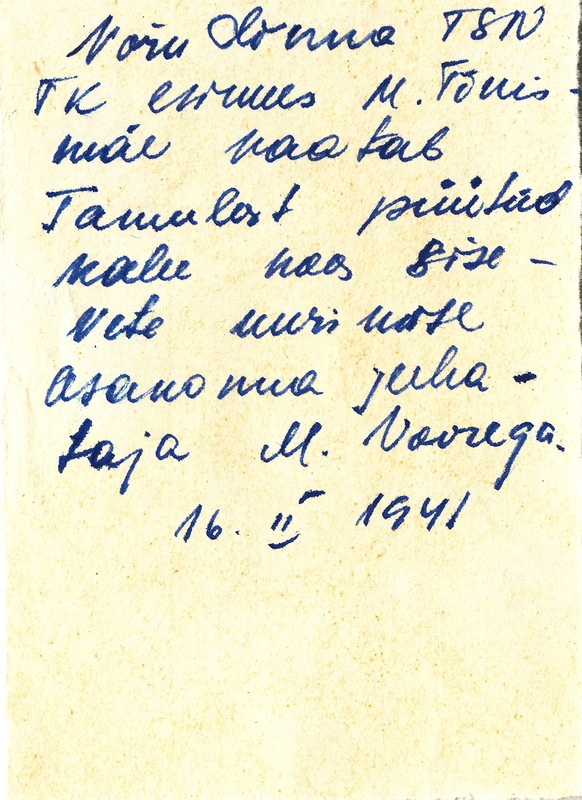 Võru Linna TSN
TK esimees M. Tõnis-
mäe vaatab
Tamulast püütud
kalu koos sise-
vete uurimise
osakonna juha-
taja M. Voorega.
16. II 1941